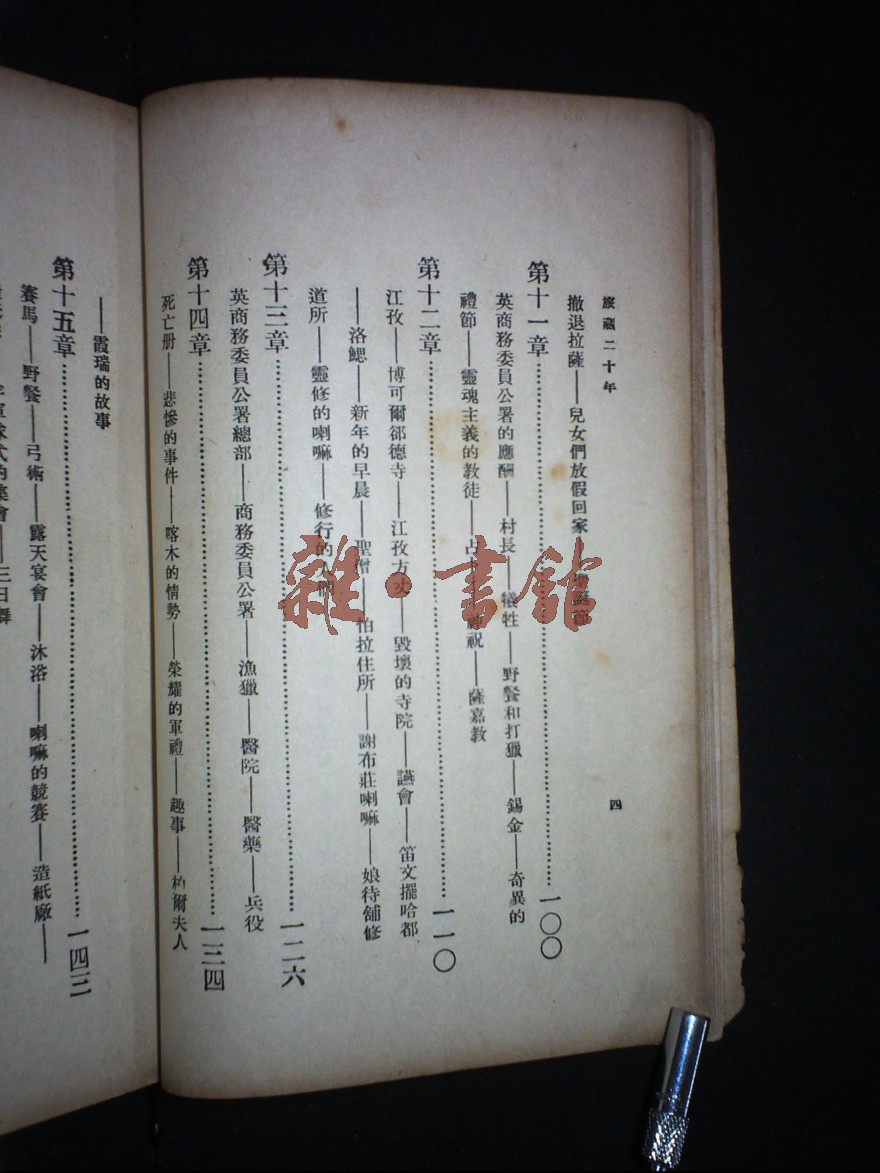 旅藏二十年
四
撤退拉薩——兒女們放假回家——聖誕節
第十一章……一〇〇
英商務委員公署的應酬——村長——犧牲——野餐和打獵——錫金——奇異的
禮節——靈魂主義的教徒——占 神祝——薩嘉教
第十二章……一一〇
江孜——博可爾郤德寺——江孜方丈——毀壞的寺院——讌會——笛文擺哈都
——洛鰓——新年的早晨——聖僧——怕拉住所——謝布莊喇嘛——娘待舖修
道所——靈修的喇嘛——修行的人們
第十三章……一二六
英商務委員公署總部——商務委員公署——漁獵——醫院——醫藥——兵役
第十四章……一三四
死亡册——悲慘的事件——喀木的情勢——榮耀的軍禮——趣事——柏爾夫人
——霞瑞的故事
第十五章……一四三
賽馬——野餐——弓術——露天宴會——沐浴——喇嘛的競賽——造紙廠——
式的集會——三日舞
雜·書館